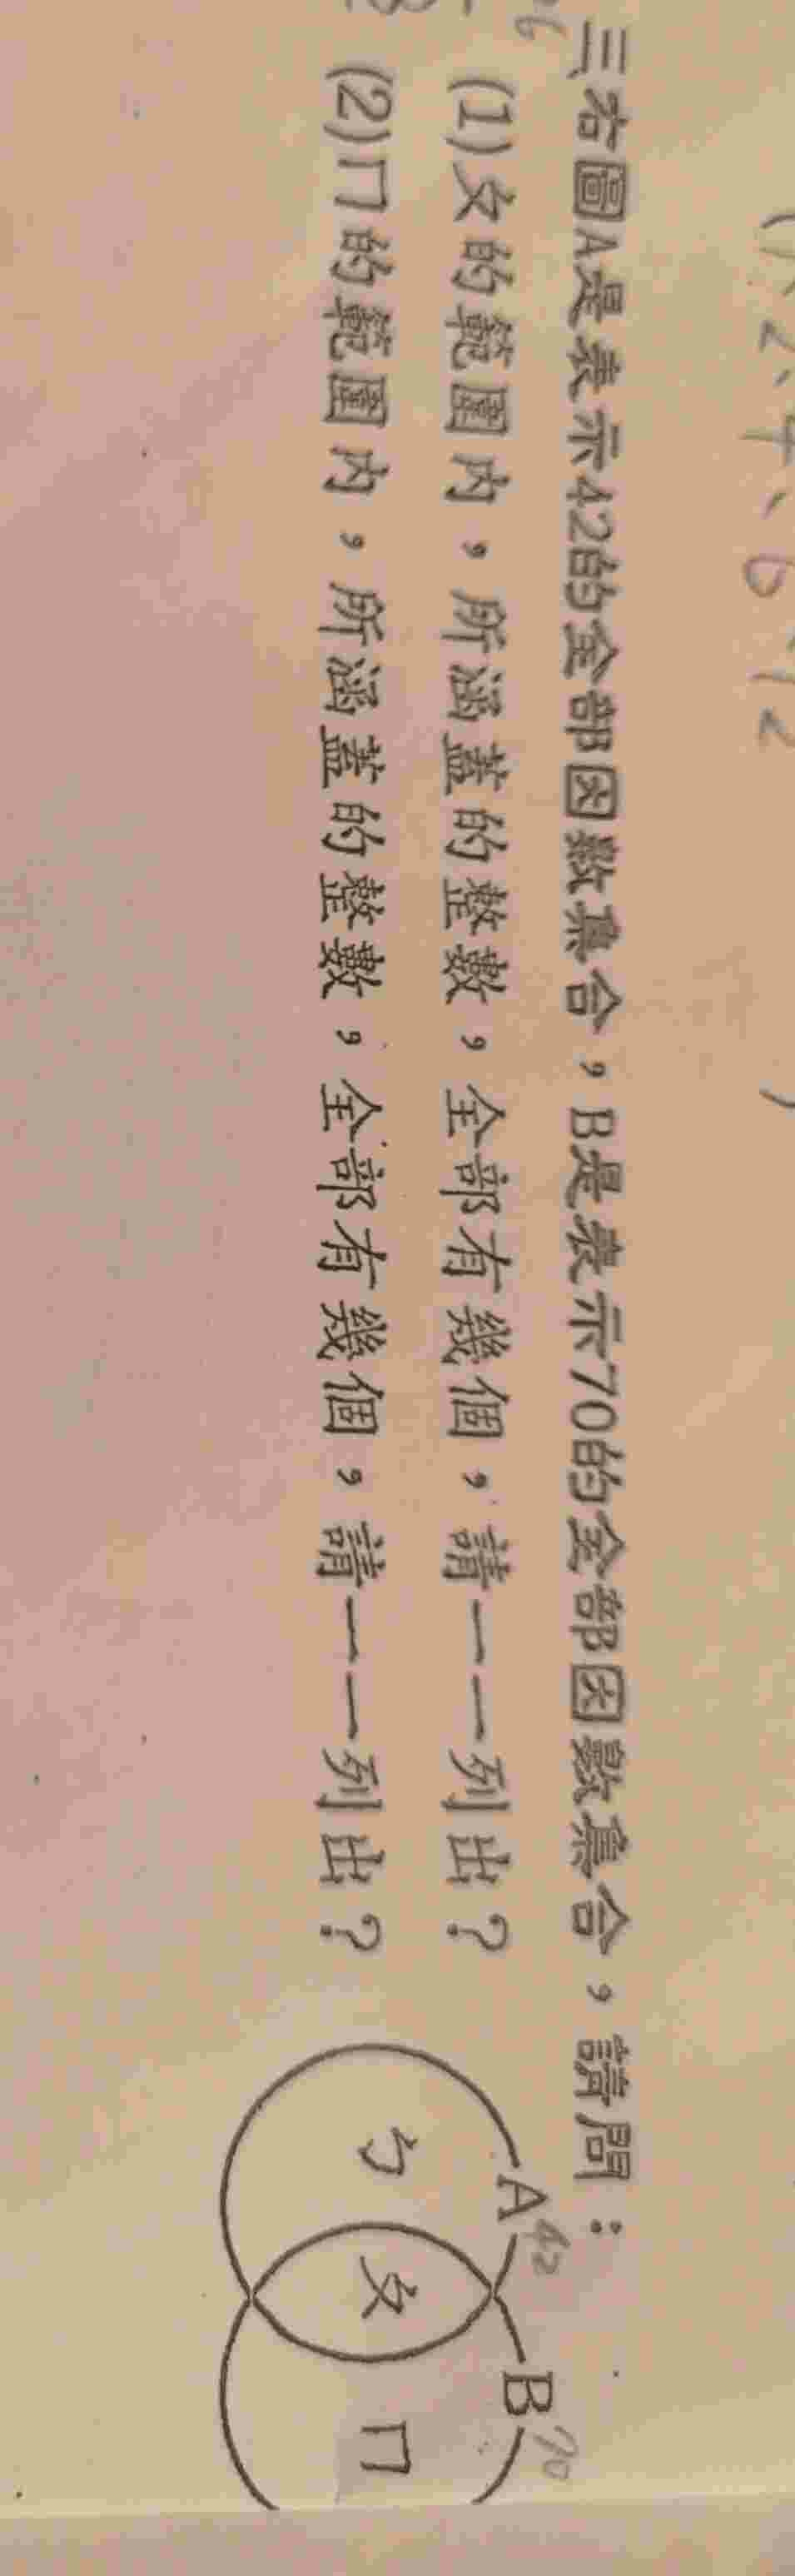 (1、2、千、6、12 )
三右圖A是表示42的全部因數集合，B是表示70的全部因數集合，請問：
(1)ㄆ的範圍內，所涵蓋的整數，全部有幾個，請一一列出？
(2)ㄇ的範圍內，所涵蓋的整數，全部有幾個，請一一列出？
A 42
B 70
ㄅ
ㄆ
ㄇ